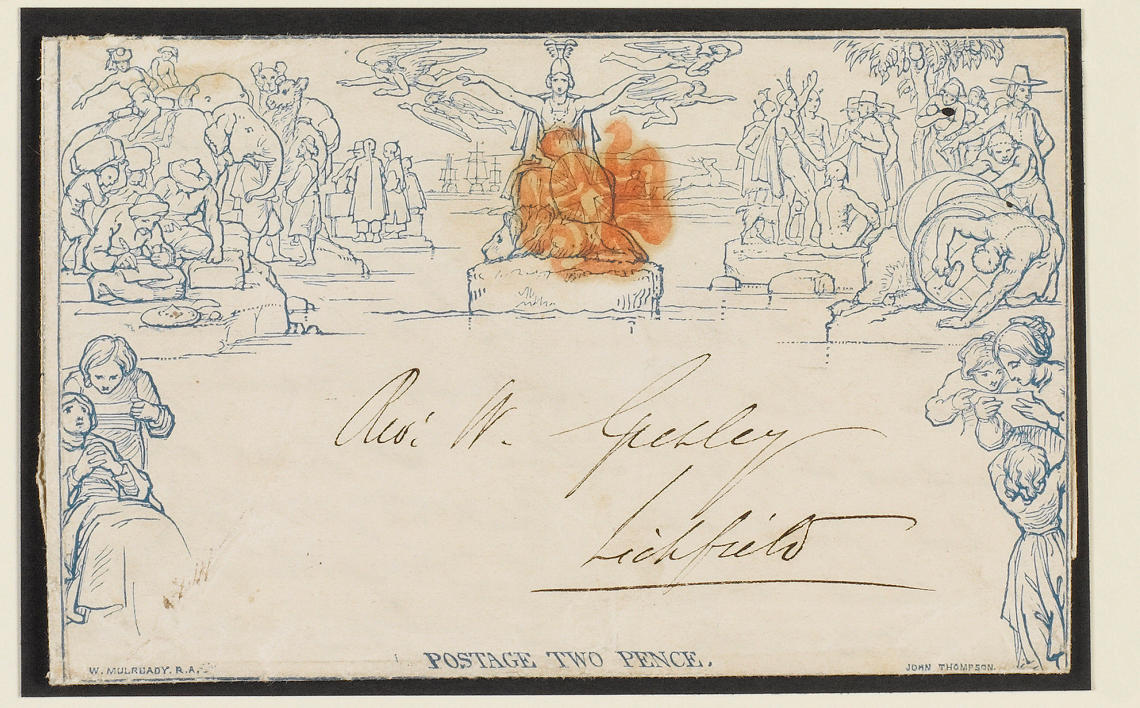 Rev. W. Gresley
Lichfield
POSTAGE TWO PENCE.
W. MULREADY. R.A.
JOHN THOMPSON.